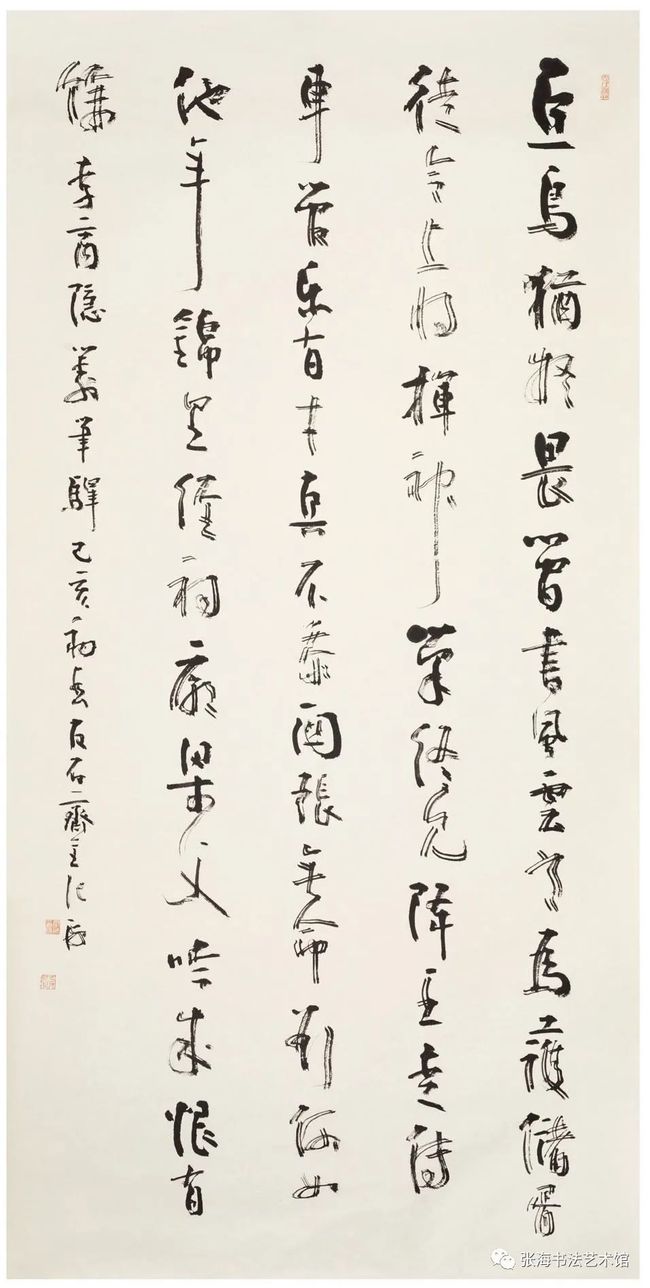 魚鳥猶疑畏簡書風雲長為護儲胥
徒令上將揮神筆終見降王走傳
車管樂有才真不忝關張無命欲何如
他年錦里經祠廟梁父吟成恨有
餘 李商隱籌筆驛己亥初春石齋主張海
张海书法艺术馆